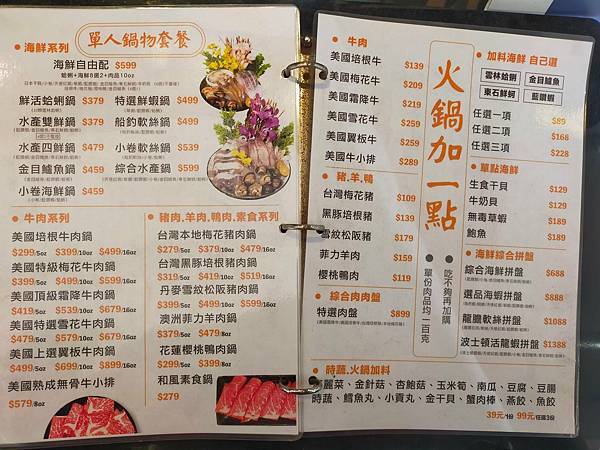 單人鍋物套餐
海鮮系列
海鮮自由配 $599
蛤蜊+海鮮8選2+肉品10oz
鮮活蛤蜊鍋 $379
特選鮮蝦鍋 $499
水產雙鮮鍋 $379
船釣軟絲鍋 $499
水產四鮮鍋 $479
小卷軟絲鍋 $539
金目鱸魚鍋 $459
綜合水產鍋 $599
小卷海鮮鍋 $459
牛肉系列
美國培根牛肉鍋
$299/5oz $399/10oz $499/16oz
美國特級梅花牛肉鍋
$399/5oz $499/10oz $599/16oz
美國頂級霜降牛肉鍋
$419/5oz $539/10oz $679/16oz
美國特選雪花牛肉鍋
$479/5oz $579/10oz $679/16oz
美國上選翼板牛肉鍋
$499/5oz $699/10oz $899/16oz
美國熟成無骨牛小排
$579/8oz
豬肉,羊肉,鴨肉,素食系列
台灣本地梅花豬肉鍋
$279/5oz $379/10oz $479/16oz
台灣黑豚培根豬肉鍋
$319/5oz $419/10oz $519/16oz
丹麥雪紋松阪豬肉鍋
$399/5oz $499/10oz $599/16oz
澳洲菲力羊肉鍋
$359/5oz $459/10oz $559/16oz
花蓮櫻桃鴨肉鍋
$299/5oz $399/8oz
和風素食鍋
$279
火鍋加一點
吃不夠再加購
單份肉品均一百克
牛肉
美國培根牛 $139
美國梅花牛 $209
美國霜降牛 $219
美國雪花牛 $259
美國翼板牛 $269
美國牛小排 $289
豬.羊.鴨
台灣梅花豬 $109
黑豚培根豬 $139
雪紋松阪豬 $179
菲力羊肉 $159
櫻桃鴨肉 $119
綜合肉肉盤
特選肉盤 $899
加料海鮮 自己選
雲林蛤蜊 金目鱸魚
東石鮮蚵 藍鑽蝦
任選一項 $89
任選二項 $168
任選三項 $228
單點海鮮
生食干貝 $129
牛奶貝 $129
無毒草蝦 $189
鮑魚 $189
海鮮綜合拼盤
綜合海鮮拼盤 $688
選品海蝦拼盤 $888
龍膽軟絲拼盤 $1088
波士頓活龍蝦拼盤 $1388
時蔬、火鍋加料
高麗菜、金針菇、杏鮑菇、玉米筍、南瓜、豆腐、豆腸
時蔬、鱈魚丸、小貢丸、金干貝、蟹肉棒、燕餃、魚餃
39元/1份 99元/任選3份